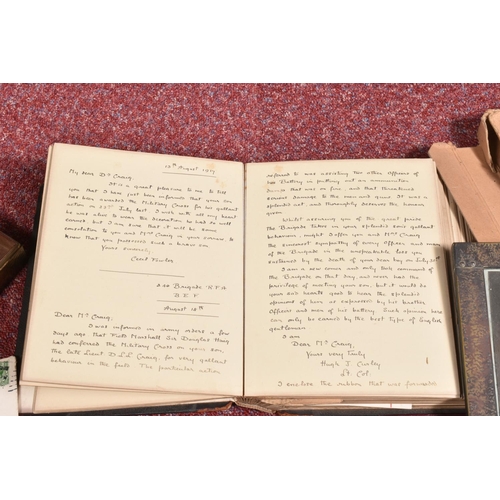 15th August 1917
My dear Dr Craig,
It is a great pleasure to me to tell
you that I have just been informed that your son
has been awarded the Military Cross for his gallant
action on 22nd July last. I wish with all my heart
he was alive to wear the decoration he had so well
earned. I am sure that it will be some
consolation to you and Mrs Craig in your sorrow to
know that you possessed such a brave son.
Yours sincerely,
Cecil
Brigade R.F.A.
B.E.F.
August 16th
Dear Mr Craig,
I was informed in army orders a few
days ago that Field Marshall Sir Douglas Haig
had conferred the Military Cross on your son,
the late Lieut D.L.L. Craig, for very gallant
behaviour in the field. The particular action
referred to was assisting two other Officers of
his Battery in putting out an ammunition
dump that was on fire, and that threatened
serious damage to the men and guns. It was a
splendid act, and thoroughly deserves the honour
given.
Whilst assuring you of the great pride
the Brigade takes in your splendid son's gallant
behaviour, might I offer you and Mrs Craig
the sincerest sympathy of every Officer and man
of the Brigade in the irreparable loss you
sustained by the death of your dear boy on July 31st.
I am a new comer and only took command of
the Brigade on that day, and never had the
privilege of meeting your son, but it would do
your sad hearts good to know the splendid
opinions of him as expressed by his brother
Officers and men of his battery. Such opinions here
can only be earned by the best type of English
gentleman.
I am
Dear Mr Craig,
Yours very truly
Hugh I
Lt. Col.
I enclose the ribbon that was forwarded